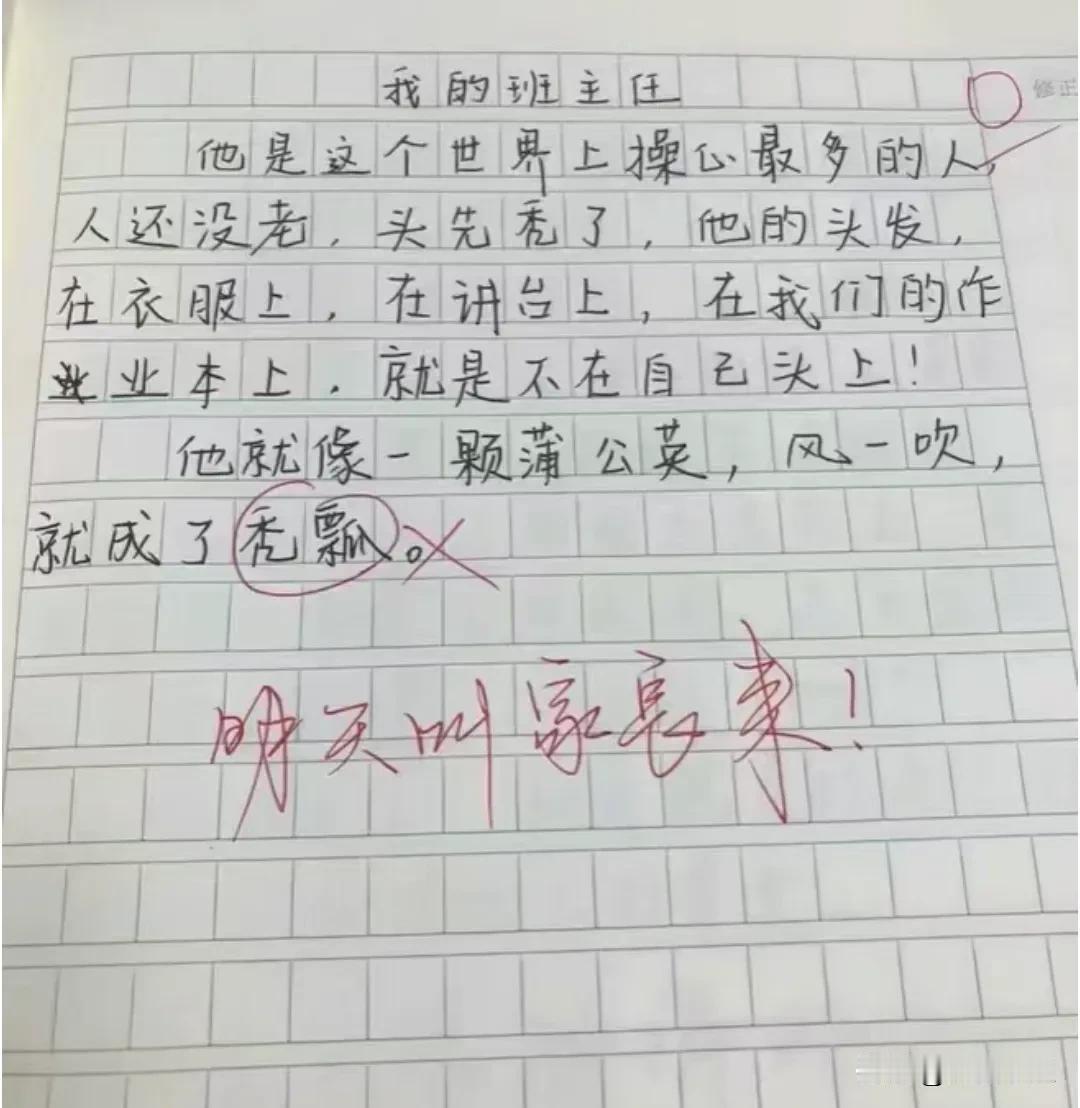 我的班主任
修正
他是这个世界上操心最多的人,
人还没老,头先秃了,他的头发,
在衣服上,在讲台上,在我们的作
业本上,就是不在自己头上!
他就像一颗蒲公英,风一吹,
就成了秃瓢。
明天叫家长来!